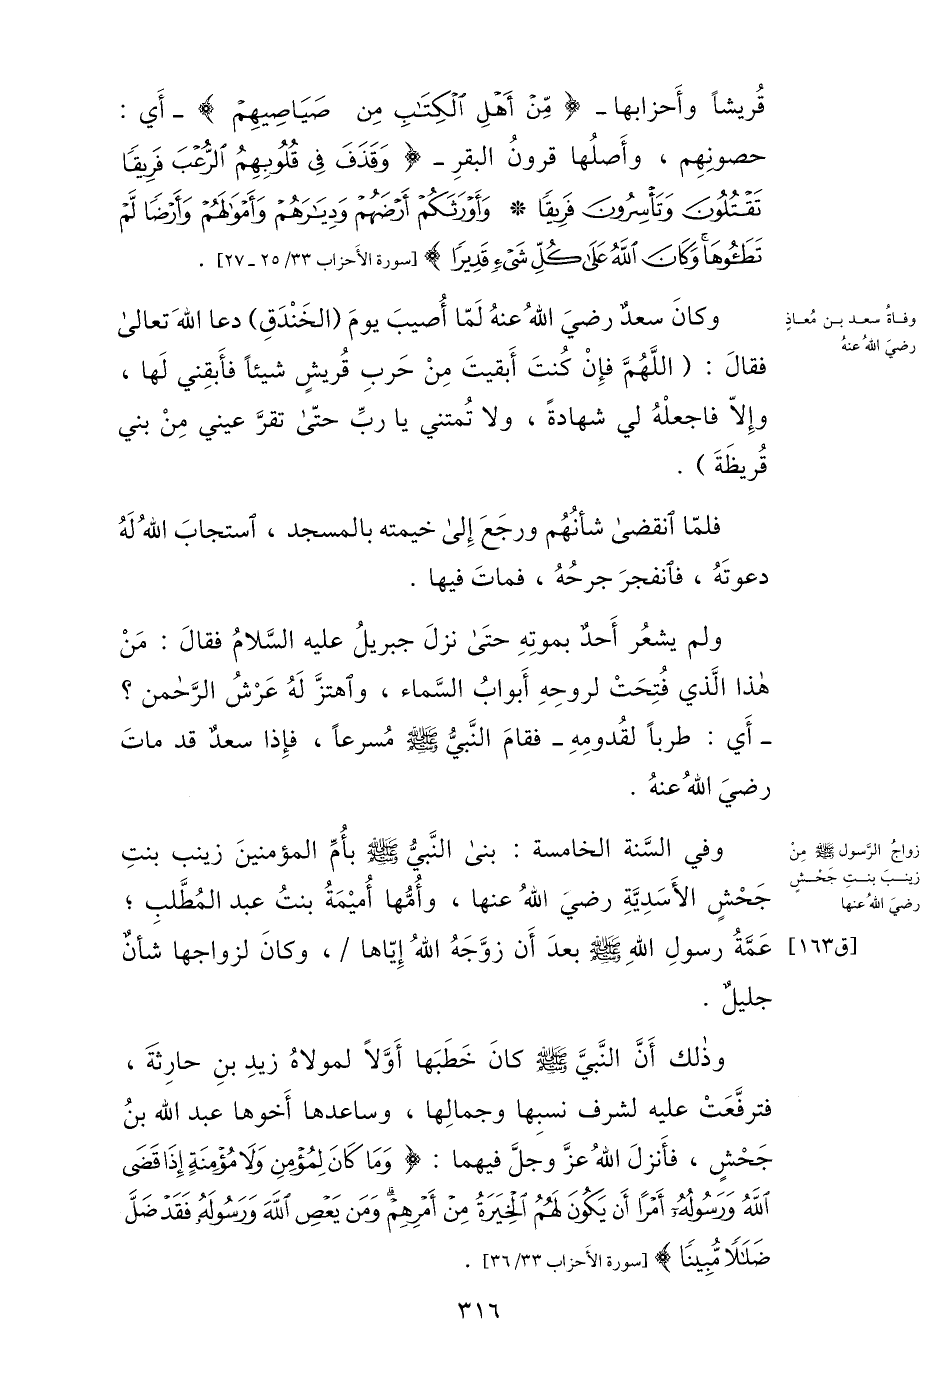 قُريشاً وأَحزابها ـ ﴿ مِّنْ أَهْلِ ٱلْكِتَٰبِ مِن صَيَاصِيهِمْ ﴾ ـ أَي :
حصونِهِم ، وأَصلُها قرونُ البقرِ ـ ﴿ وَقَذَفَ فِى قُلُوبِهِمُ ٱلرُّعْبَ فَرِيقًا
تَقْتُلُونَ وَتَأْسِرُونَ فَرِيقًا * وَأَوْرَثَكُمْ أَرْضَهُمْ وَدِيَٰرَهُمْ وَأَمْوَٰلَهُمْ وَأَرْضًا لَّمْ
تَطَـُٔوهَا ۚ وَكَانَ ٱللَّهُ عَلَىٰ كُلِّ شَىْءٍ قَدِيرًا ﴾ [سورة الأحزاب ٣٣/ ٢٥ ـ ٢٧] .
وفاةُ سعد بن مُعاذٍ
رضيَ اللهُ عنهُ
وكانَ سعدٌ رضيَ اللهُ عنهُ لَمّا أُصيبَ يومَ (الخَنْدَقِ) دعا اللهَ تعالىٰ
فقالَ : ( اللَّهُمَّ فإِنْ كُنتَ أَبقيتَ مِنْ حَربِ قُريشٍ شيئاً فأَبقِني لَها ،
وإِلاّ فاجعلْهُ لي شهادةً ، ولا تُمتني يا ربِّ حتّىٰ تقرَّ عيني مِنْ بني
قُريظَةَ ) .
فلمّا ٱنقضىٰ شأنُهُم ورجَعَ إِلىٰ خيمته بالمسجد ، ٱستجابَ اللهُ لَهُ
دعوتَهُ ، فٱنفجرَ جرحُهُ ، فماتَ فيها .
ولم يشعُر أَحدٌ بموتِهِ حتَىٰ نزلَ جبريلُ عليه السَّلامُ فقالَ : مَنْ
هٰذا الَّذي فُتِحَتْ لروحِهِ أَبوابُ السَّماء ، وٱهتزَّ لَهُ عَرْشُ الرَّحْمن ؟
ـ أَي : طرباً لقُدومِهِ ـ فقامَ النَّبيُّ ﷺ مُسرعاً ، فإِذا سعدٌ قد ماتَ
رضيَ اللهُ عنهُ .
زواجُ الرَّسول ﷺ مِنْ
زينبَ بنتِ جَحْشٍ
رضيَ اللهُ عنها
وفي السَّنة الخامسة : بنىٰ النَّبيُّ ﷺ بأُمِّ المؤمنينَ زينب بنتِ
جَحْشٍ الأَسديَّةِ رضيَ اللهُ عنها ، وأُمُّها أُميْمَةُ بنتُ عبد المُطَّلبِ ؛
[ق١٦٣]
عَمَّةُ رسولِ اللهِ ﷺ بعدَ أَن زوَّجَهُ اللهُ إِيّاها / ، وكانَ لزواجها شأنٌ
جليلٌ .
وذٰلك أَنَّ النَّبيَّ ﷺ كانَ خَطَبَها أَوَّلاً لمولاهُ زيدِ بنِ حارثةَ ،
فترفَّعَتْ عليه لشرف نسبِها وجمالِها ، وساعدها أَخوها عبد الله بنُ
جَحْشٍ ، فأَنزلَ اللهُ عزَّ وجلَّ فيهما : ﴿ وَمَا كَانَ لِمُؤْمِنٍ وَلَا مُؤْمِنَةٍ إِذَا قَضَى
ٱللَّهُ وَرَسُولُهُۥٓ أَمْرًا أَن يَكُونَ لَهُمُ ٱلْخِيَرَةُ مِنْ أَمْرِهِمْ ۗ وَمَن يَعْصِ ٱللَّهَ وَرَسُولَهُۥ فَقَدْ ضَلَّ
ضَلَٰلًا مُّبِينًا ﴾ [سورة الأحزاب ٣٣/ ٣٦] .
٣١٦